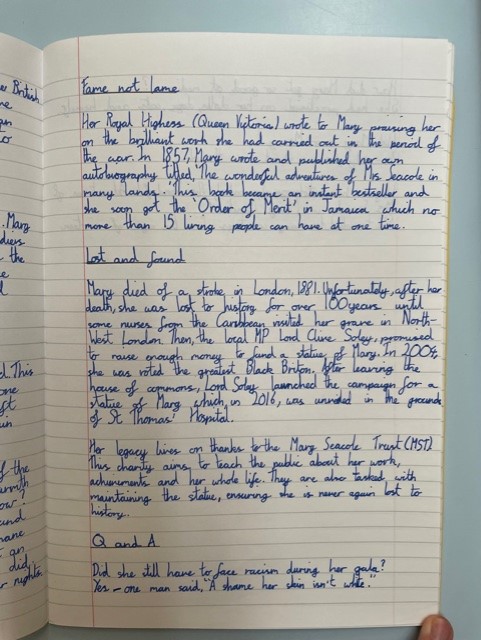 Fame not lame
Her Royal Highess (Queen Victoria) wrote to Mary praising her
on the brilliant work she had carried out in the period of
the war. In 1857, Mary wrote and published her own
autobiography titled, The wonderful adventures of Mrs Seacole in
many lands. This book became an instant bestseller and
she soon got the 'Order of Merit' in Jamaica which no
more than 15 living people can have at one time.
Lost and found
Mary died of a stroke in London, 1881. Unfortunately, after her
death, she was lost to history for over 100 years until
some nurses from the Caribbean visited her grave in North-
West London. Then, the local MP Lord Clive Soley, promised
to raise enough money to fund a statue of Mary. In 2004,
she was voted the greatest Black Briton. After leaving the
house of commons, Lord Soley launched the campaign for a
statue of Mary which, in 2016, was unveiled in the grounds
of St Thomas' Hospital.
Her legacy lives on thanks to the Mary Seacole Trust (MST)
This charity aims to teach the public about her work,
achievements and her whole life. They are also tasked with
maintaining the statue, ensuring she is never again lost to
history.
Q and A
Did she still have to face racism during her gala?
Yes - one man said, "A shame her skin isn't white."